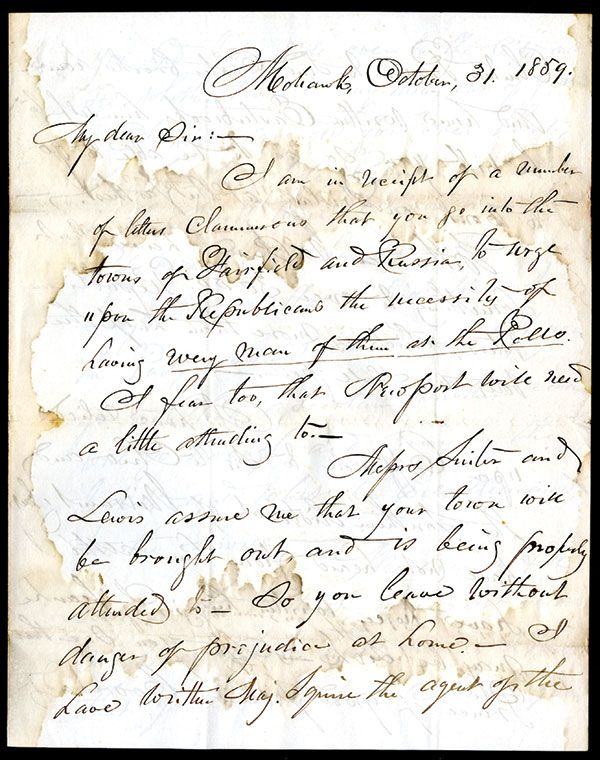 Mohawk, October, 31. 1859.
My dear Sir:—
I am in receipt of a number
of letters clamorous that you go into the
towns of Fairfield and Russia, to urge
upon the Republicans the necessity of
having every man of them at the Polls.
I fear too, that Newport will need
a little attending to.—
Messrs, and
Lewis assure me that your town will
be brought out and is being properly
attended to— So you leave without
danger of prejudice at home.— I
have written Maj. Squire the agent of the